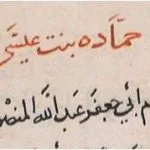 حمّاده بنت عيسَى
م أبي جعفر عبد الله المنصو